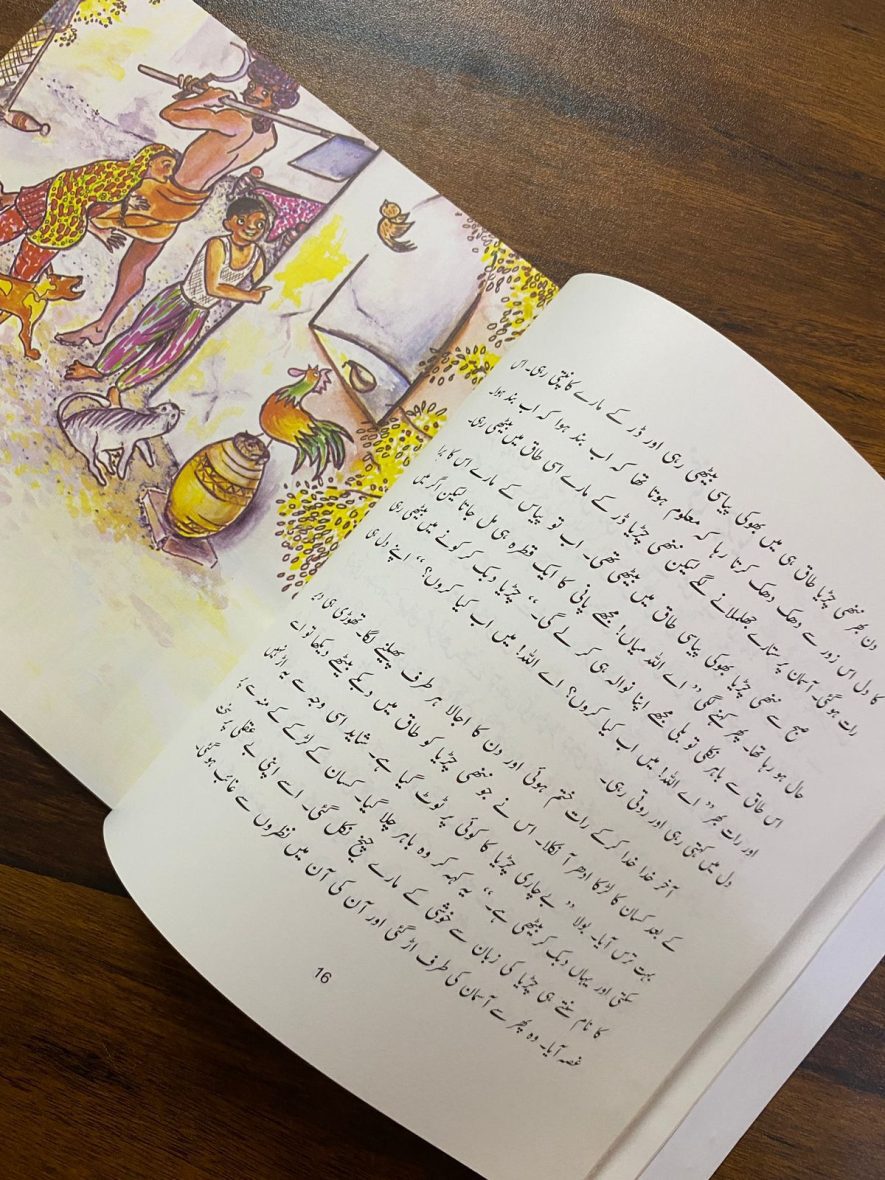 دن بھر ننھی چڑیا طاق ہی میں بھوکی پیاسی بیٹھی رہی اور ڈر کے مارے کانپتی رہی۔ اس
کا دل اس زور سے دھک دھک کرتا رہا کہ معلوم ہوتا تھا کہ اب بند ہوا کہ اب بند ہوا۔
رات ہو گئی۔ آسمان پر ستارے جھلملانے لگے لیکن ننھی چڑیا ڈر کے مارے اسی طاق میں بیٹھی رہی۔
صبح سے ننھی چڑیا بھوکی پیاسی طاق میں بیٹھی تھی۔ اب تو پیاس کے مارے اس کا برا
حال ہو رہا تھا۔ پھر کہنے لگی ”اے اللہ میاں! مجھے پانی کا ایک قطرہ ہی مل جاتا لیکن اگر میں
اس طاق سے باہر نکلی تو بلی مجھے اپنا نوالہ ہی کر لے گی۔“ چڑیا دبک کر کونے میں بیٹھی رہی
اور رات بھر ”اے اللہ! میں اب کیا کروں؟ اے اللہ! میں اب کیا کروں؟“ اپنے دل ہی
دل میں کہتی رہی اور روتی رہی۔
آخر خدا خدا کرکے رات ختم ہوئی اور دن کا اجالا ہر طرف پھیلنے لگا۔ تھوڑی ہی دیر
کے بعد کسان کا لڑکا ادھر آ نکلا۔ اس نے جو ننھی چڑیا کو طاق میں دبکے بیٹھے دیکھا تو اسے
بہت ترس آیا۔ بولا ”بے چاری چڑیا کا کوئی پر ٹوٹ گیا ہے۔ شاید اسی وجہ سے یہ اڑ نہیں
سکتی اور یہاں دبک کر بیٹھی ہے۔“ یہ کہہ کر وہ باہر چلا گیا۔ کسان کے لڑکے کے منہ سے پر
کا نام سنتے ہی چڑیا کی زبان سے خوشی کے مارے چیخ نکل گئی۔ اسے اپنی بے عقلی پر بڑا
غصہ آیا۔ وہ پھر سے آسمان کی طرف اڑ گئی اور آن کی آن میں نظروں سے غائب ہو گئی۔
16